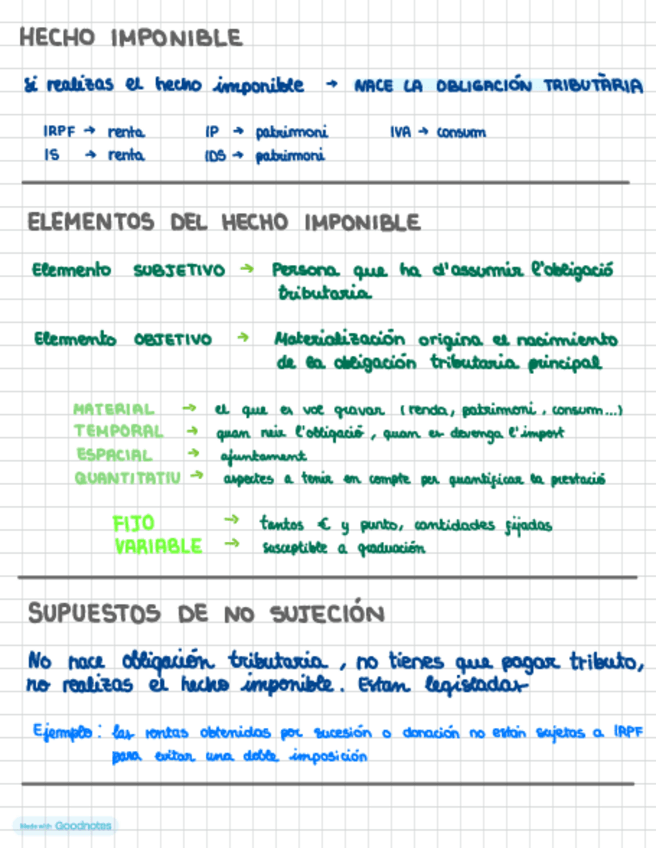 HECHO IMPONIBLE
Si realizas el hecho imponible → NACE LA OBLIGACIÓN TRIBUTARIA
IRPF → renta IP → patrimoni IVA → consum
IS → renta IDS → patrimoni
ELEMENTOS DEL HECHO IMPONIBLE
Elemento SUBJETIVO → Persona que ha d'assumir l'obligació
tributaria
Elemento OBJETIVO → Materialización origina el nacimiento
de la obligación tributaria principal
MATERIAL → el que es vol gravar (renda, patrimoni, consum...)
TEMPORAL → quan neix l'obligació, quan es devenga l'import
ESPACIAL → ajuntament
QUANTITATIU → aspectes a tenir en compte per quantificar la prestació
FIJO → tantos € y punto, cantidades fijadas
VARIABLE → susceptible a graduación
SUPUESTOS DE NO SUJECIÓN
No nace obligación tributaria, no tienes que pagar tributo,
no realizas el hecho imponible. Estan legislador
Ejemplo: las rentas obtenidas por sucesión o donación no están sujetas a IRPF
para evitar una doble imposición
Made with Goodnotes